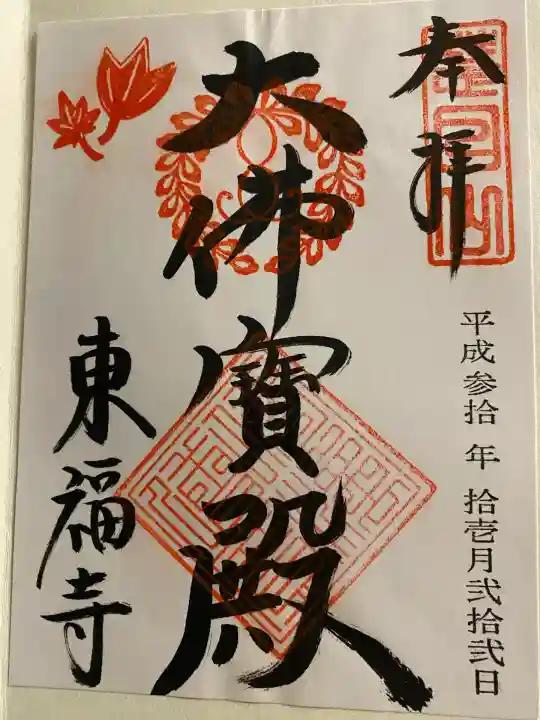 奉拝
平成参拾年 拾壱月弐拾弐日
大佛寳殿
東福寺